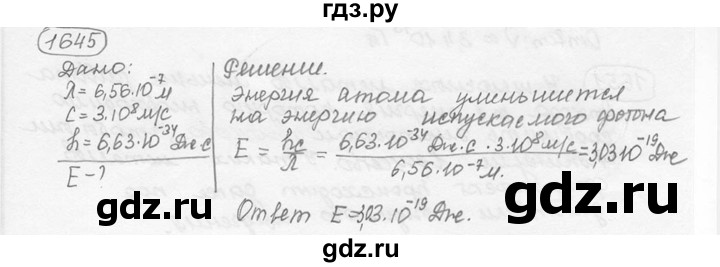 гдз.ру
1645
Дано:
λ = 6,56·10⁻⁷ м
c = 3·10⁸ м/с
h = 6,63·10⁻³⁴ Дж·с
E - ?
Решение.
Энергия атома уменьшится
на энергию испускаемого фотона
E = hc/λ = 6,63·10⁻³⁴ Дж·с · 3·10⁸ м/с / 6,56·10⁻⁷ м. = 3,03·10⁻¹⁹ Дж
Ответ E = 3,03·10⁻¹⁹ Дж.
gdz.ru
gdz.ru
gdz.ru